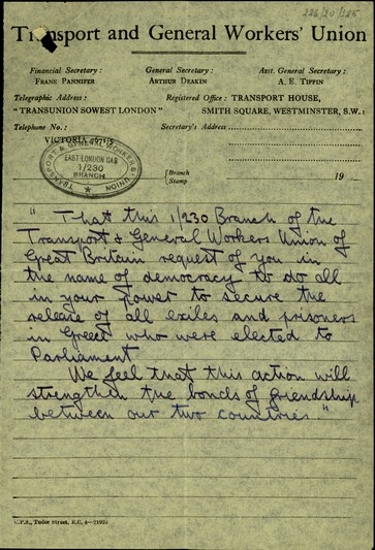 226/20/185
Transport and General Workers' Union
Financial Secretary: General Secretary: Asst. General Secretary:
Frank Pannifer Arthur Deakin A. E. Tiffin
Telegraphic Address: Registered Office: TRANSPORT HOUSE,
"TRANSUNION SOWEST LONDON" SMITH SQUARE, WESTMINSTER, S.W.1
Telephone No.: Secretary's Address
VICTORIA
TRANSPORT & GENERAL WORKERS' UNION
EAST LONDON CAB
1/230
BRANCH
{Branch
Stamp 19
"That this 1/230 Branch of the
Transport & General Workers Union of
Great Britain request of you in
the name of democracy to do all
in your power to secure the
release of all exiles and prisoners
in Greece who were elected to
Parliament
We feel that this action will
strengthen the bonds of friendship
between our two countries"
C.P.S., Tudor Street, E.C. 4—